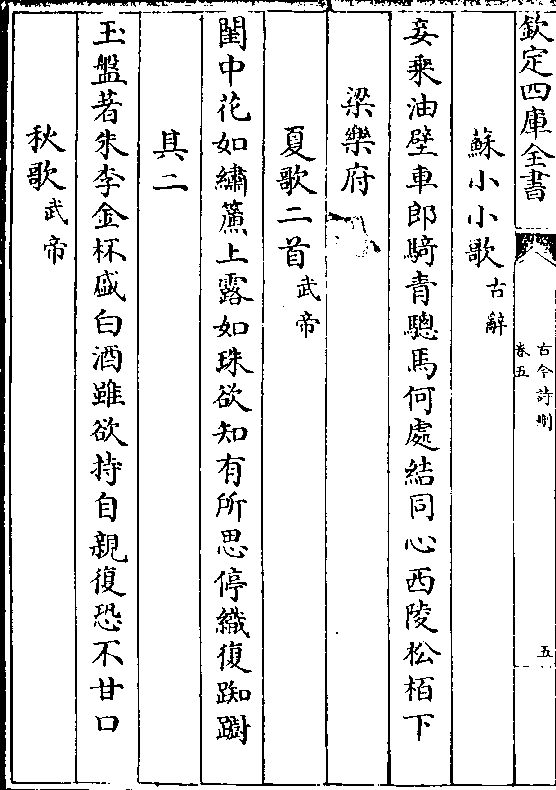 欽定四庫全書
古今詩刪
卷五
五
蘇小小歌古辭
妾乗油壁車郎騎青驄馬何處結同心西陵松栢下
梁樂府
夏歌二首武帝
閨中花如繡簾上露如珠欲知有所思停織復踟躕
其二
玉盤著朱李金杯盛白酒雖欲持自親復恐不甘口
秋歌武帝